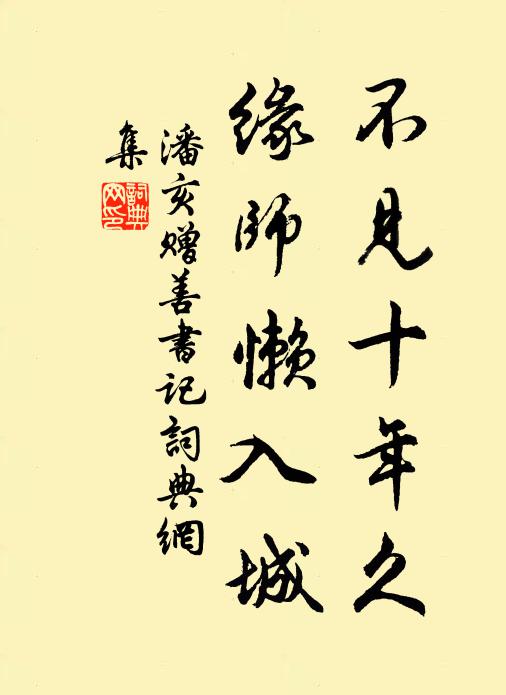 不見十年久
緣師懶入城
潘亥贈善書記詞典網
集
詞典網印